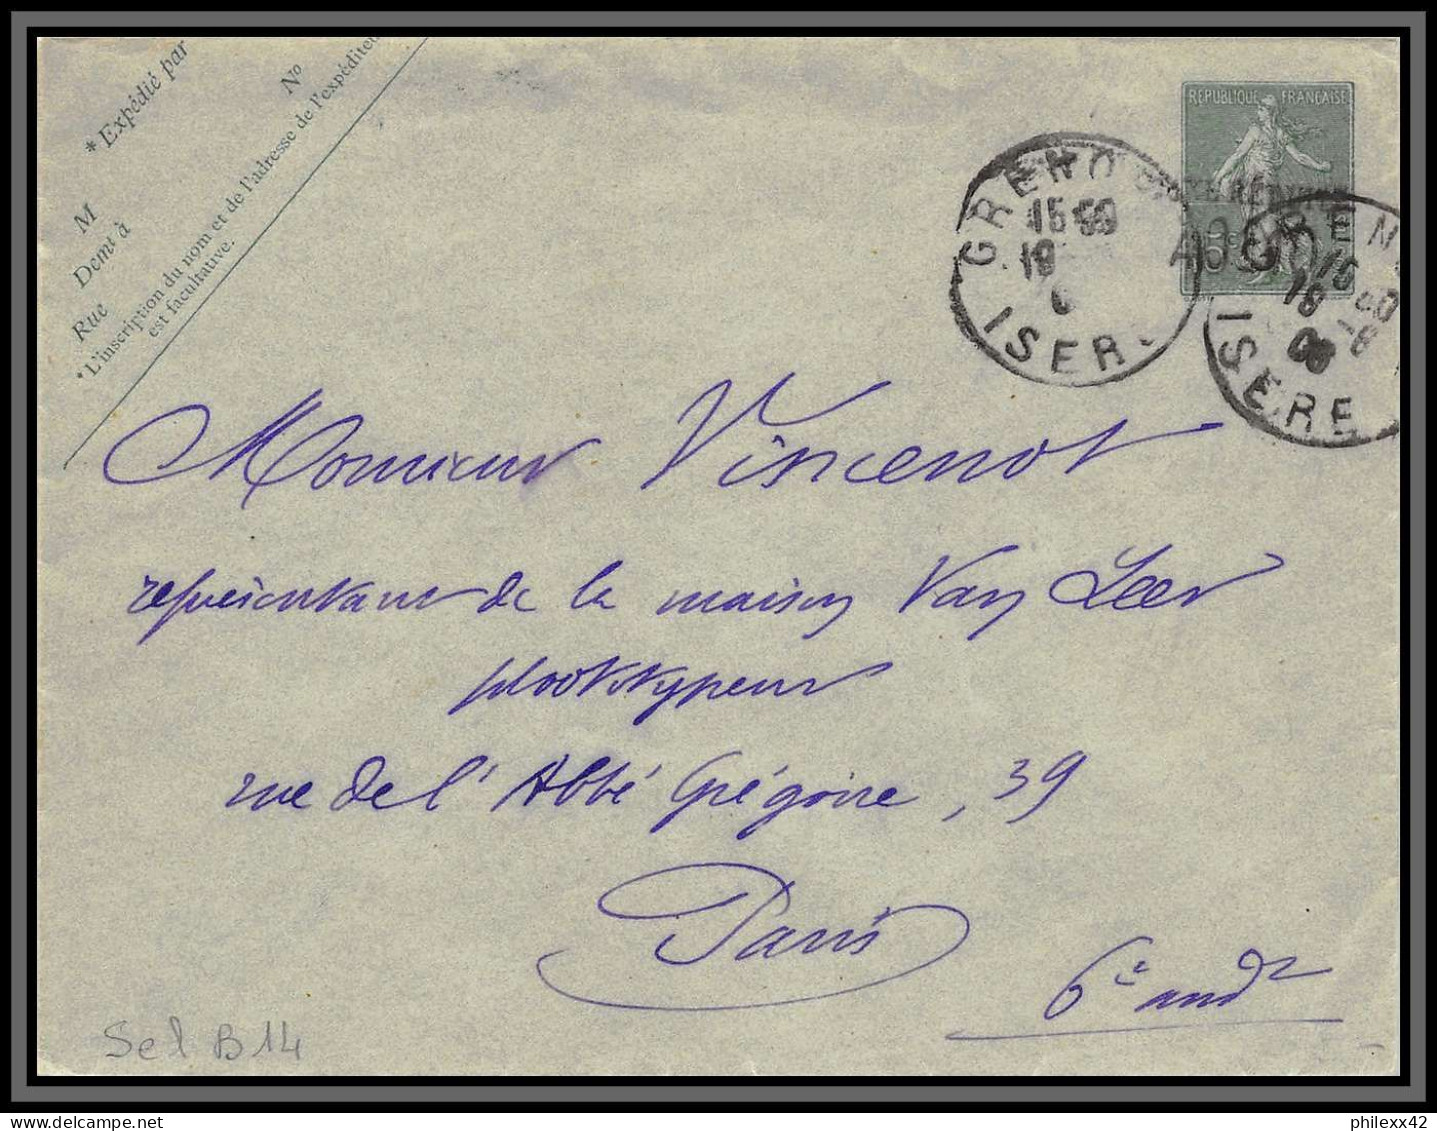 * Expédié par
N°
M
Demt à
Rue
* L'inscription du nom et de l'adresse de l'expéditeur
est facultative.
REPUBLIQUE FRANÇAISE
GRENO
15
19
ISERE
GRENO
15 40
19 -6
06
ISERE
Monsieur Vincenot
représentant de la maison Van Leer
phototypeur
rue de l'Abbé Grégoire, 39
Paris
6e arrdt
Sel B14
philexx42